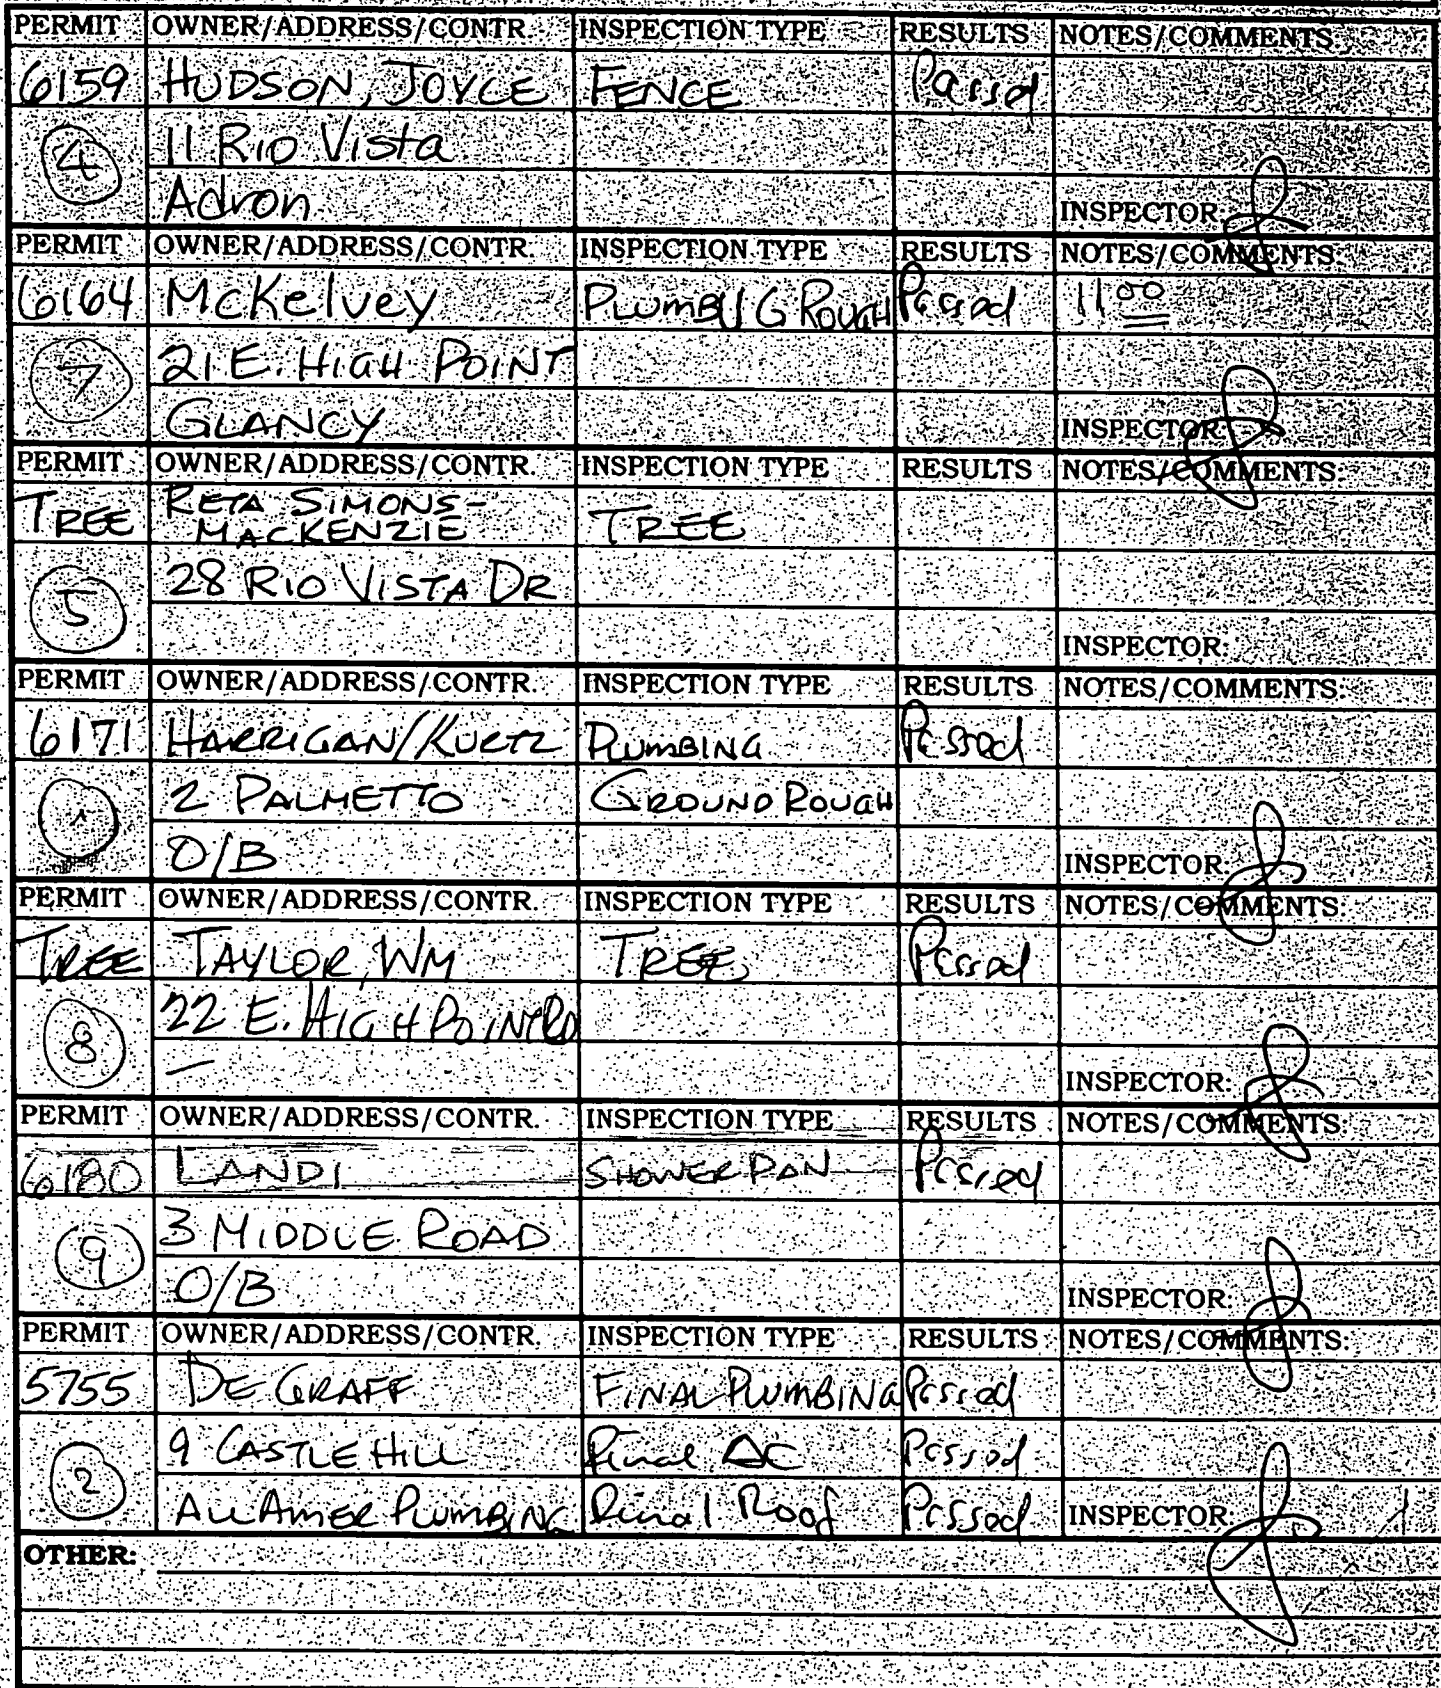 PERMIT OWNER/ADDRESS/CONTR. INSPECTION TYPE RESULTS NOTES/COMMENTS
6159 HUDSON, JOYCE FENCE Passed
4 11 Rio Vista
Adron INSPECTOR:
PERMIT OWNER/ADDRESS/CONTR. INSPECTION TYPE RESULTS NOTES/COMMENTS:
6164 McKelvey PLUMBING ROUGH Passed 11 00
7 21 E. HIGH POINT
GLANCY INSPECTOR:
PERMIT OWNER/ADDRESS/CONTR. INSPECTION TYPE RESULTS NOTES/COMMENTS:
TREE RETA SIMONS-
MACKENZIE TREE
5 28 RIO VISTA DR
INSPECTOR:
PERMIT OWNER/ADDRESS/CONTR. INSPECTION TYPE RESULTS NOTES/COMMENTS:
6171 HARRIGAN/KURTZ PLUMBING Passed
1 2 PALMETTO GROUND ROUGH
O/B INSPECTOR
PERMIT OWNER/ADDRESS/CONTR. INSPECTION TYPE RESULTS NOTES/COMMENTS:
TREE TAYLOR, WM TREE Passed
8 22 E. HIGH POINT RD
— INSPECTOR:
PERMIT OWNER/ADDRESS/CONTR. INSPECTION TYPE RESULTS NOTES/COMMENTS:
6180 LANDI SHOWER PAN Passed
9 3 MIDDLE ROAD
O/B INSPECTOR:
PERMIT OWNER/ADDRESS/CONTR. INSPECTION TYPE RESULTS NOTES/COMMENTS:
5755 DE GRAFF FINAL PLUMBING Passed
2 9 CASTLE HILL Final AC Passed
ALL AMER PLUMBING Final Roof Passed INSPECTOR
OTHER: